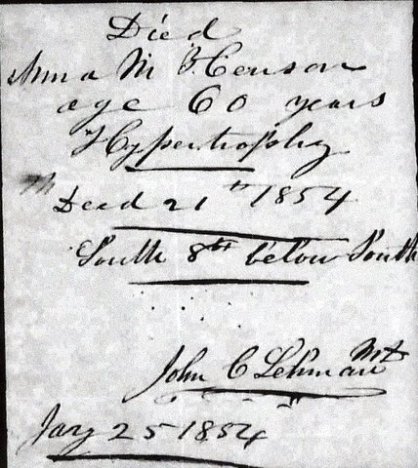 Died
Anna M
age 60 years
Hypertrophy
Died 21st 1854
South 8th below South
John C Lehman
Jany 25 1854